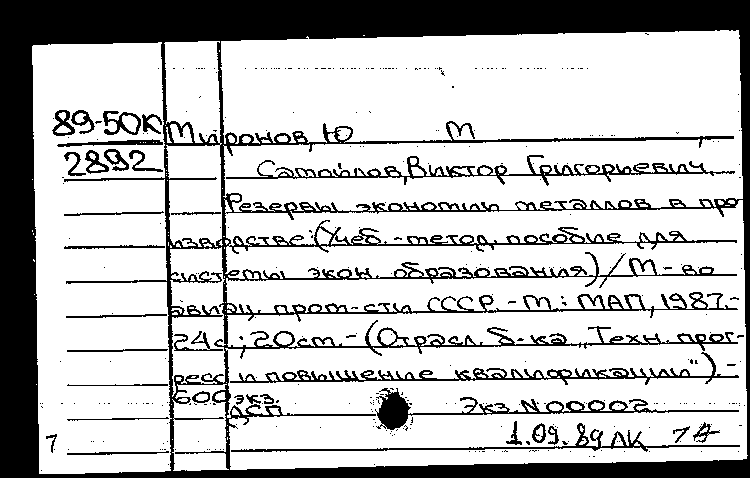 89-50К Миронов, Ю М
2892 Самойлов, Виктор Григорьевич.
Резервы экономии металлов в про-
изводстве: (Учеб.-метод. пособие для
системы экон. образования) / М-во
авиац. пром-сти СССР. - М.: МАП, 1987. -
24с.; 20см. - (Отрасл. б-ка "Техн. прог-
ресс и повышение квалификации"). -
600 экз.
ДСП. Экз. N 00002
7 1.09.89 ЛК